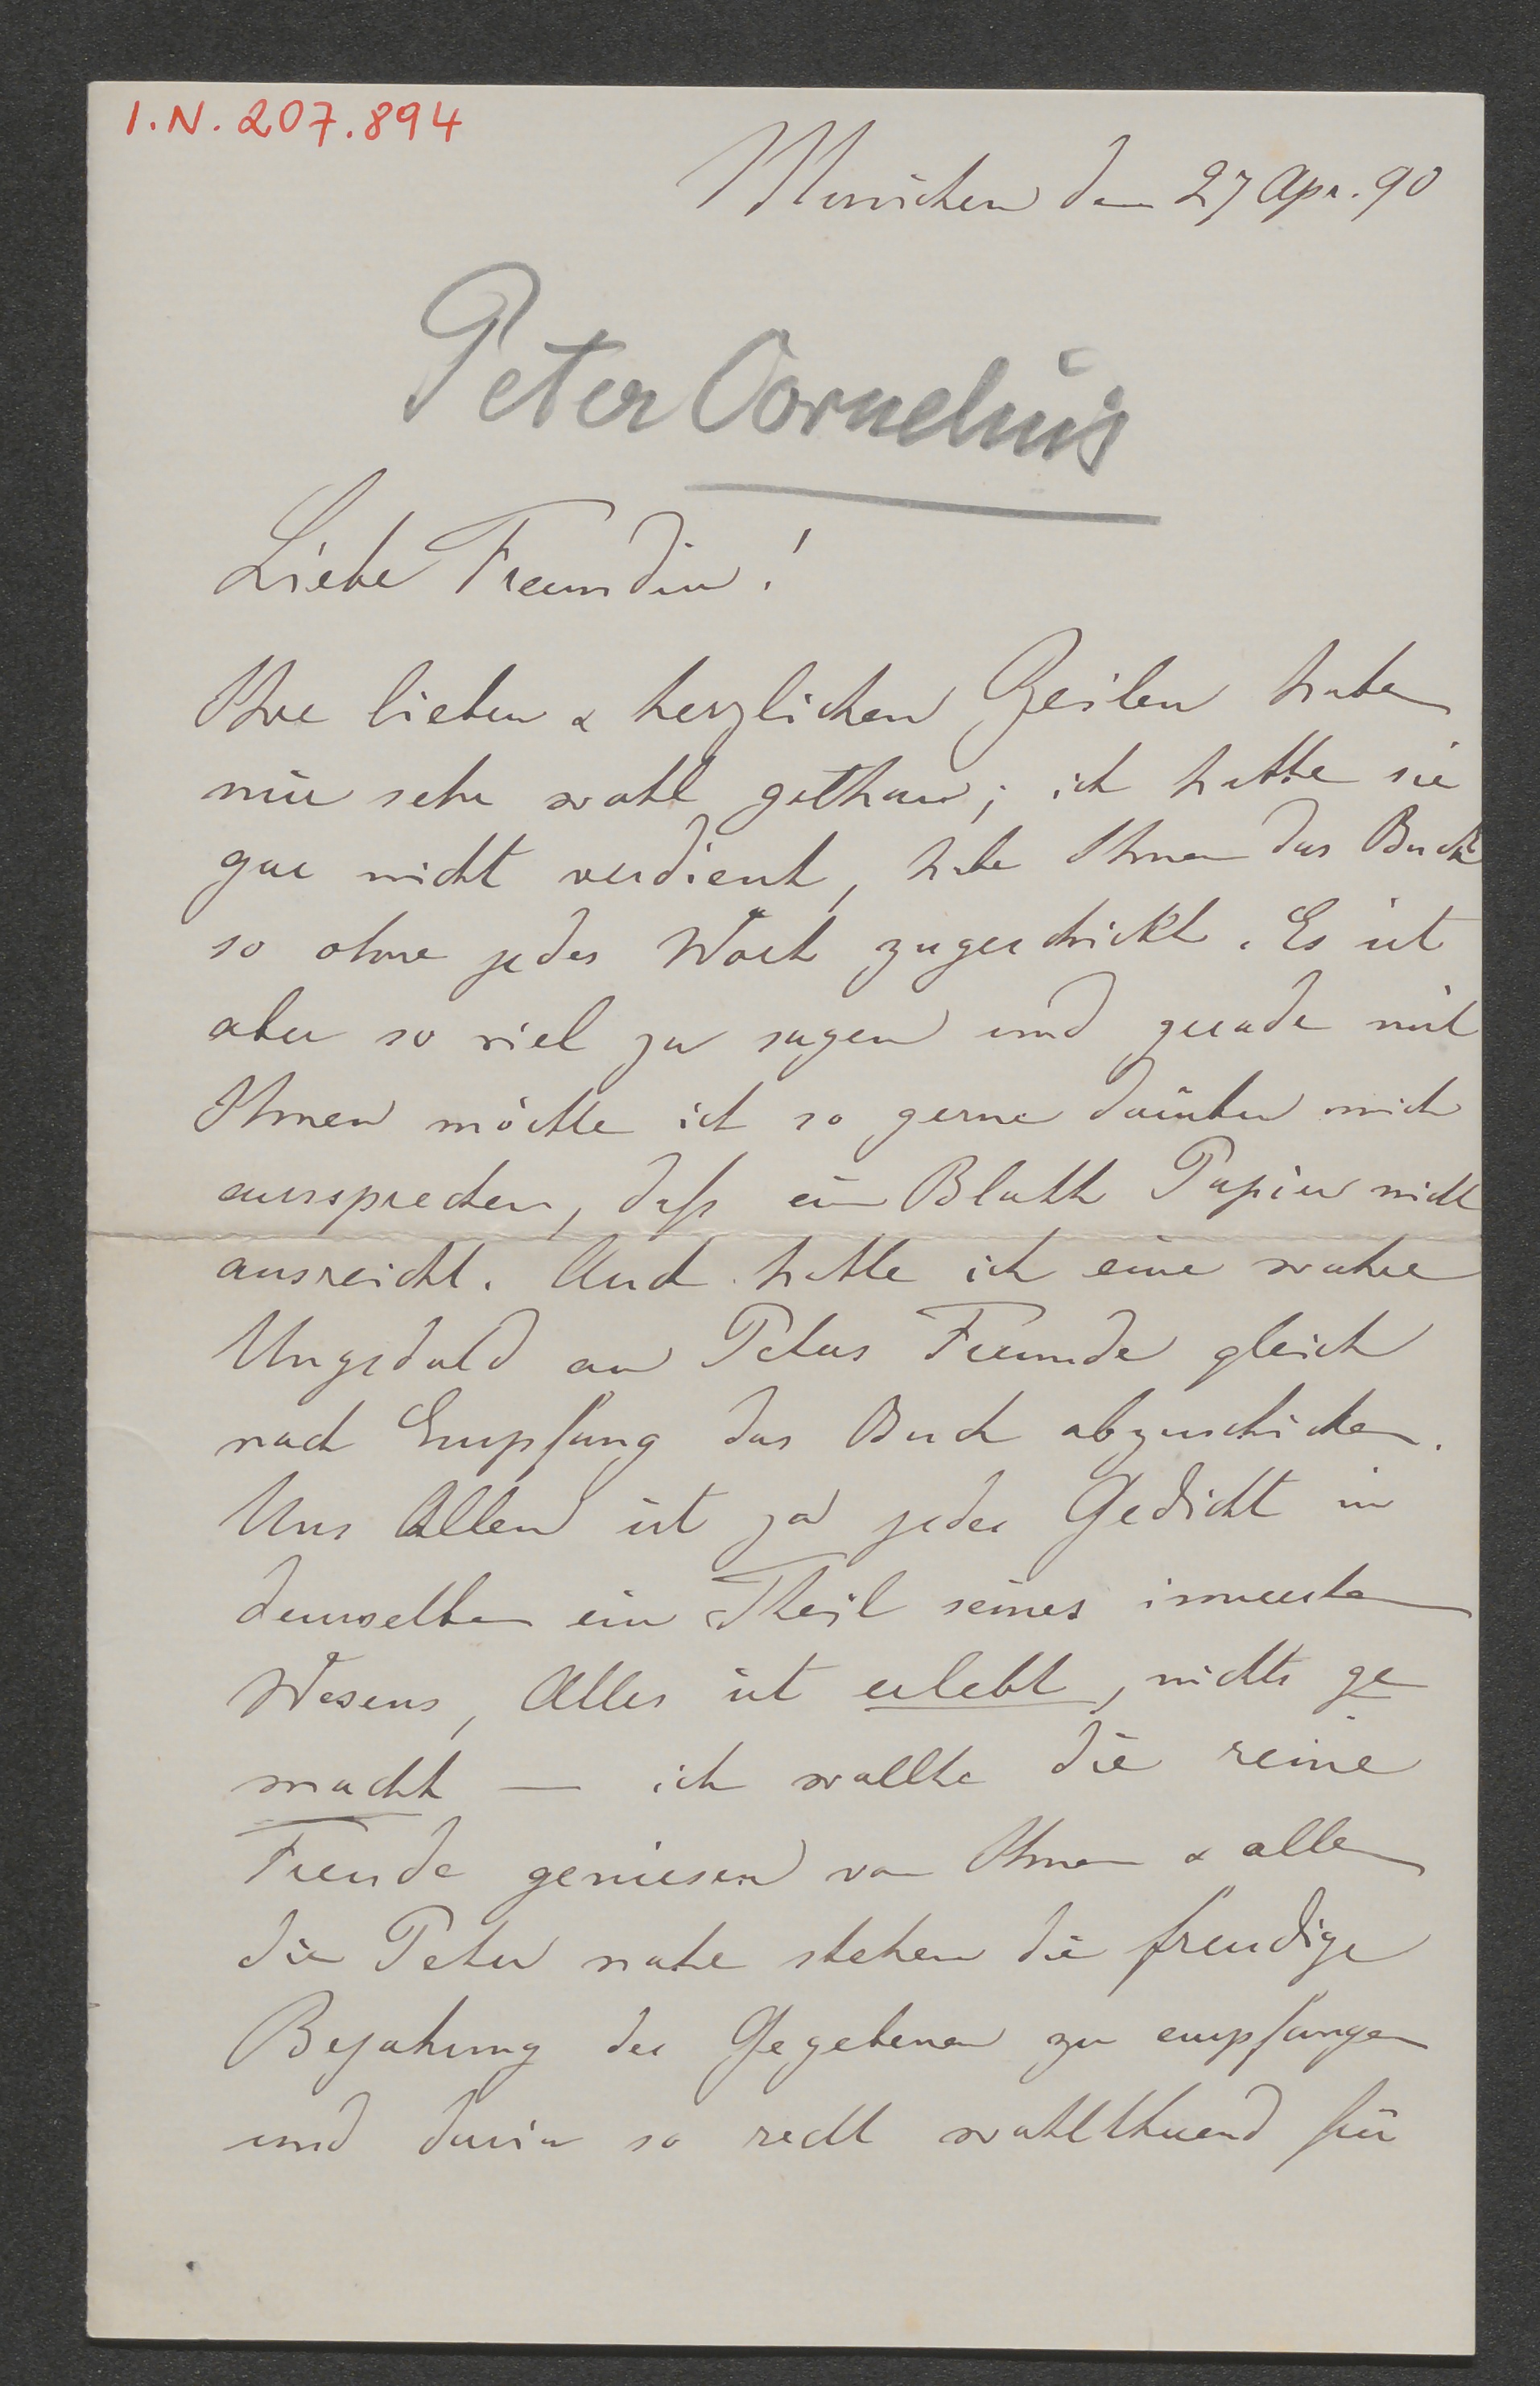 I.N. 207.894
München den 27 Apr. 90
Peter Cornelius
Liebe Freundin!
Ihre lieben & herzlichen Zeilen haben
mir sehr wohl gethan; ich hatte sie
gar nicht verdient, habe Ihnen das Buch
so ohne jedes Wort zugeschickt. Es ist
aber so viel zu sagen und gerade mit
Ihnen möchte ich so gerne darüber mich
aussprechen, daß ein Blatt Papier nicht
ausreicht. Auch hatte ich eine wahre
Ungeduld an Peters Freunde gleich
nach Empfang das Buch abzuschicken.
Uns Allen ist ja jedes Gedicht in
demselben ein Theil seines innersten
Wesens, Alles ist erlebt, nichts ge
macht — ich wollte die reine
Freude geniesen von Ihnen & allen
die Peter nahe stehen die freudige
Bejahung des Gegebenen zu empfangen
und darin so recht wohlthuend für